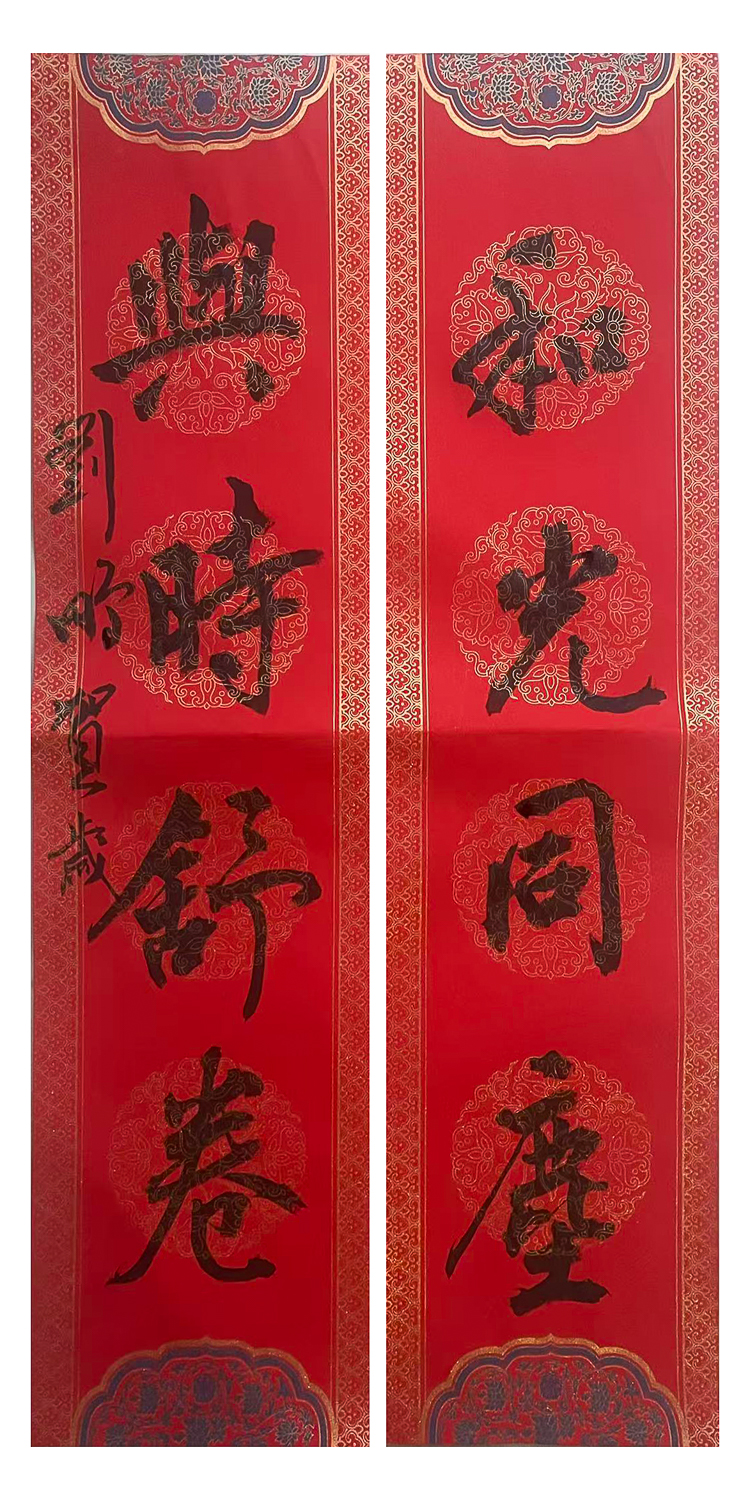 和光同塵
與時舒卷
劉昕賀歲